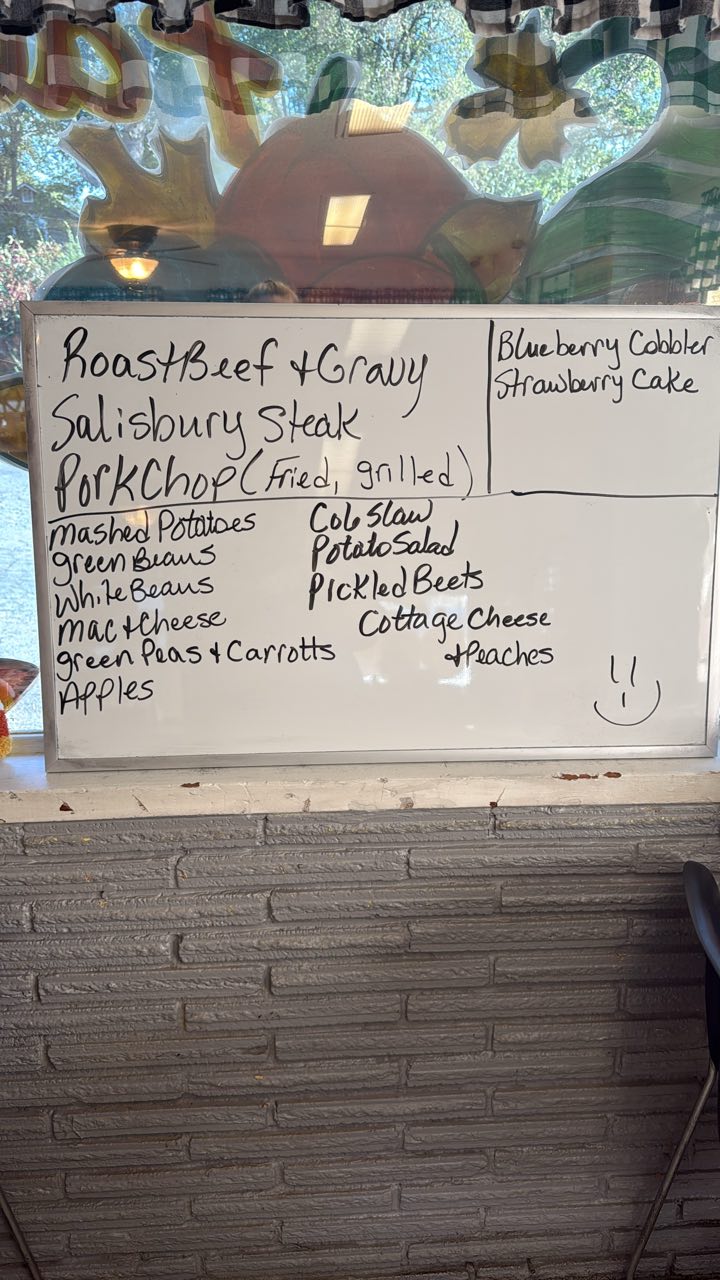 Roast Beef + Gravy
Salisbury Steak
Pork Chop (Fried, grilled)
Blueberry Cobbler
Strawberry Cake
Mashed Potatoes
green Beans
White Beans
Mac + Cheese
green Peas + Carrotts
Apples
Cole Slaw
Potato Salad
Pickled Beets
Cottage Cheese
+ Peaches